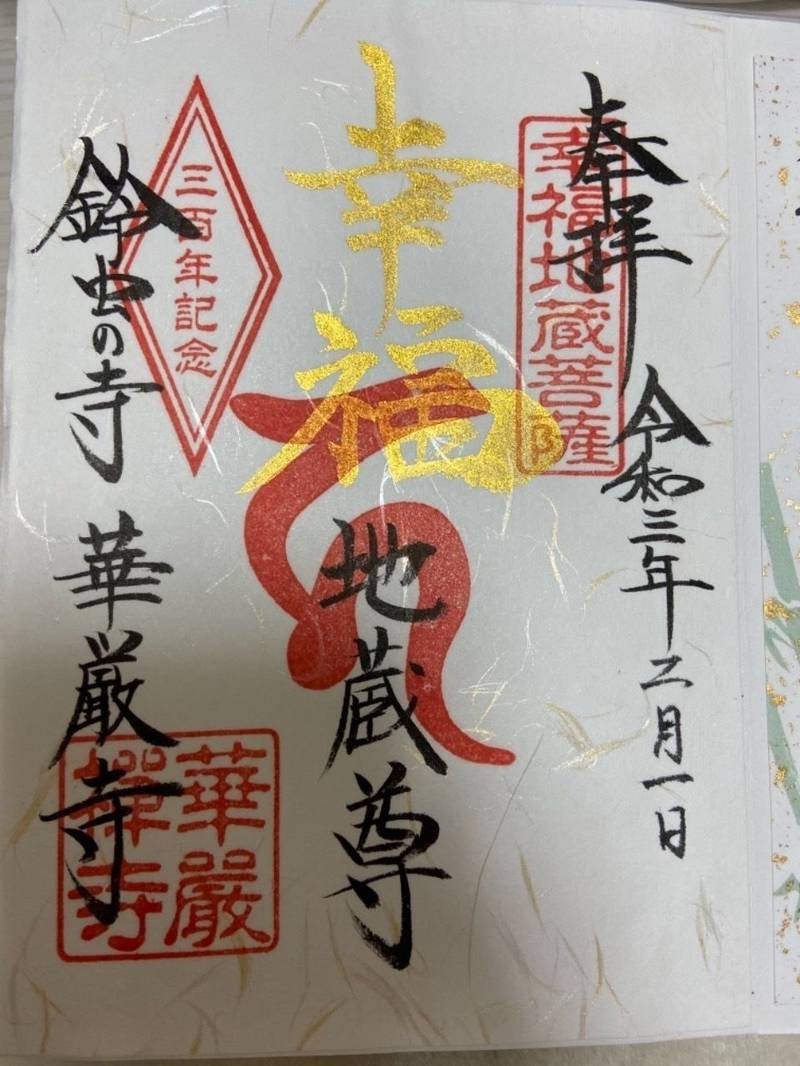 奉拝
令和三年二月一日
幸福地蔵菩薩
幸福
地蔵尊
三百年記念
鈴虫の寺 華厳寺
華嚴
禅寺